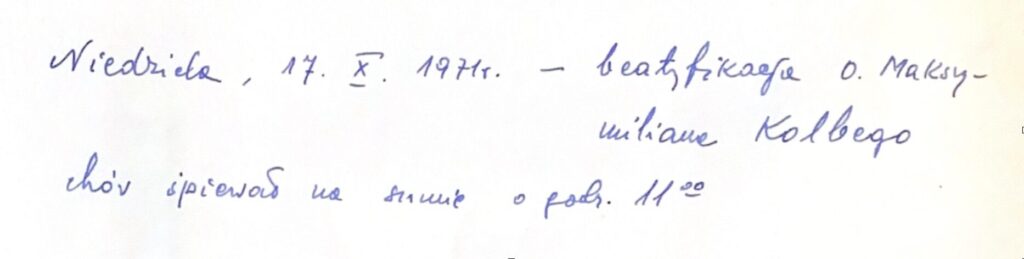 Niedziela, 17. X. 1971r. – beatyfikacja o. Maksy-
miliana Kolbego
chór śpiewał na sumie o godz. 11⁰⁰